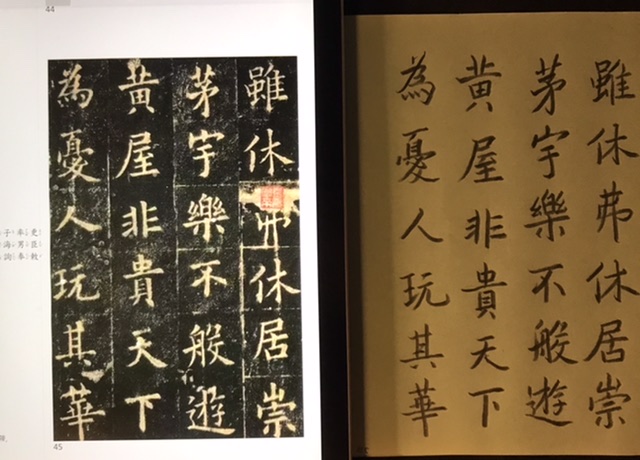 44
雖休弗休居崇
茅宇樂不般遊
黄屋非貴天下
為憂人玩其華
子率更
海男臣
詢奉敕
45
雖休弗休居崇
茅宇樂不般遊
黄屋非貴天下
為憂人玩其華